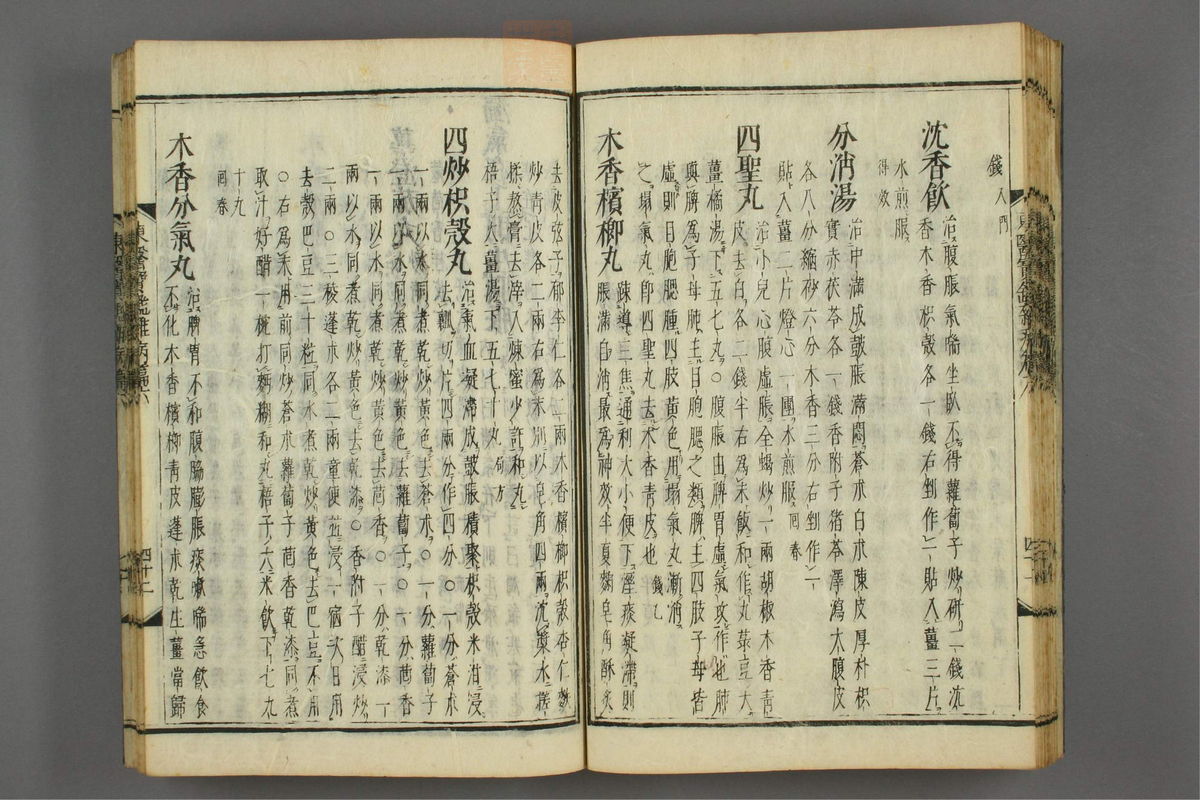 錢入門
沈香飮 治腹脹氣喘坐臥不得蘿蔔子炒硏二錢沈
香木香枳殼各一錢右剉作一貼入薑三片
水煎服
得效
分消湯 治中滿成鼓脹滿悶蒼朮白朮陳皮厚朴枳
實赤茯苓各一錢香附子猪苓澤瀉大腹皮
各八分縮砂六分木香三分右剉作一
貼入薑二片燈心一團水煎服 回春
四聖丸 治小兒心腹虛脹全蝎炒一兩胡椒木香靑
皮去白各二錢半右爲末飯和作丸菉豆大
薑橘湯下五七丸○腹脹由脾胃虛氣攻作也肺
與脾爲子母肺主目胞腮之類脾主四肢子母皆
虛則目胞腮腫四肢黃色用塌氣丸漸消
之塌氣丸卽四聖丸去木香靑皮也 錢乙
木香檳榔丸 踈導三焦通利大小便下痰凝滯則
脹滿自消最爲神效半夏麴皂角酥炙
去皮弦子郁李仁各二兩木香檳榔枳殼杏仁麩
炒靑皮各二兩右爲末別以皂角四兩沈漿水搓
揉熬膏去滓入煉蜜少許和丸
梧子大薑湯下五七十丸 局方
四炒枳殼丸 治氣血凝滯成鼓脹積聚枳殼米泔浸
去瓤切片四兩分作四分○一分蒼朮
一兩以水同煮乾炒黃色去蒼朮○一分蘿蔔子
一兩以水同煮乾炒黃色去蘿蔔子○一分茴香
一兩以水同煮乾炒黃色去茴香○一分乾漆一
兩以水同煮乾炒黃色去乾漆○香附子醋浸炒
二兩○三稜蓬朮各二兩童便並浸一宿次日用
去殼巴豆三十粒同水煮乾炒黃色去巴豆不用
○右爲末用前同炒蒼朮蘿蔔子茴香乾漆同煮
取汁好醋一椀打麪糊和丸梧子大米飮下七丸
十丸
回春
木香分氣丸 治脾胃不和腹脇膨脹痰嗽喘急飮食
不化木香檳榔靑皮蓬朮乾生薑當歸